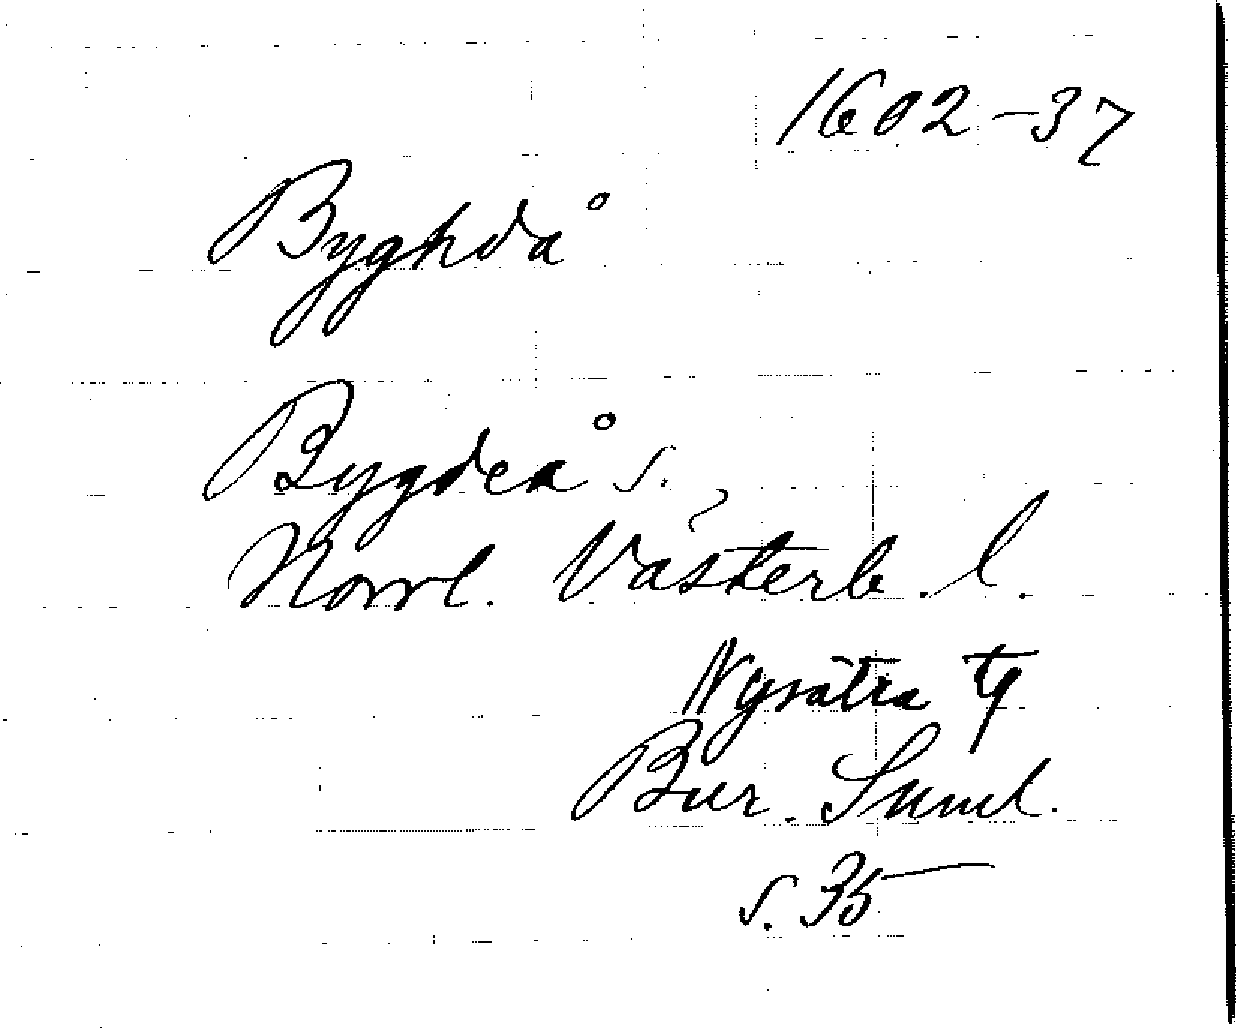 1602-37
Byghdå
Bygdeå s.
Norrl. Västerb. l.
Nysätra tg
Bur. Suml.
s. 35